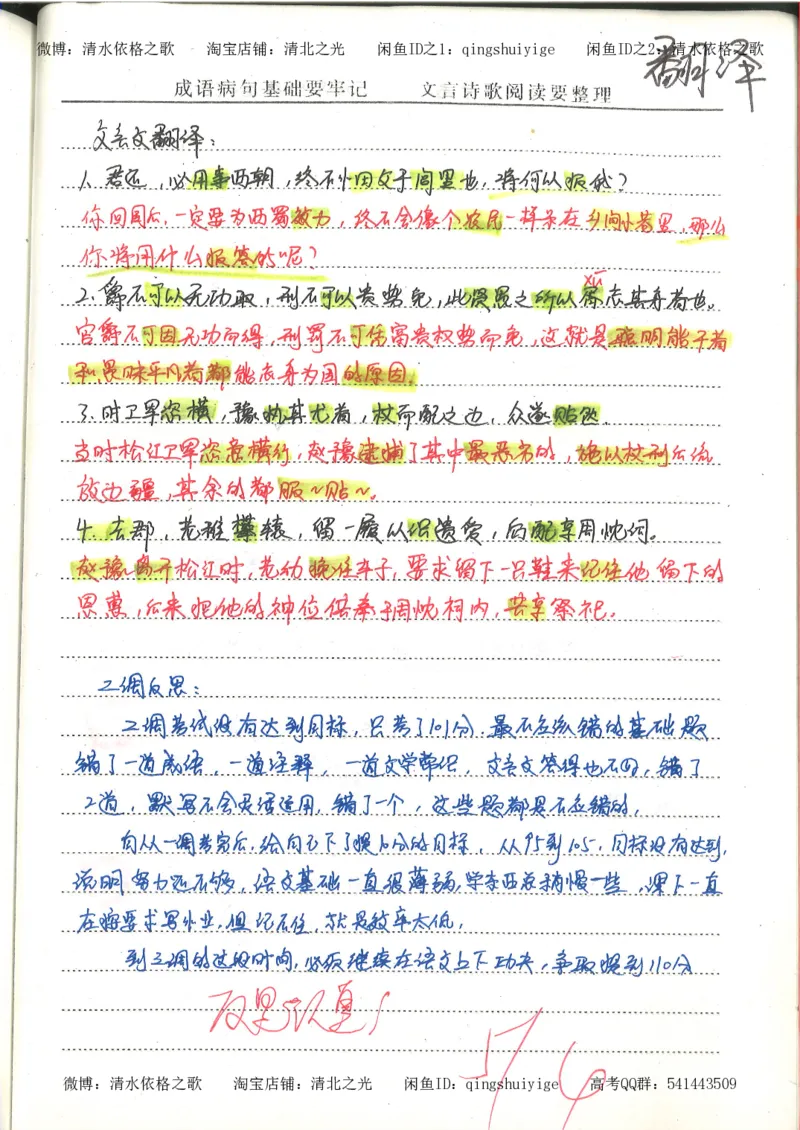 微博：清水依格之歌 淘宝店铺：清北之光 闲鱼ID之1：qingshuiyige 闲鱼ID之2：清水依格之歌
翻译
成语病句基础要牢记 文言诗歌阅读要整理
文言文翻译：
1. 君还，必用事西朝，终不作田父于闾里也，将何以报我？
你回国后，一定要为西蜀效力，终不会像个农民一样呆在乡间小巷里，那么
你将用什么报答的呢？
2. 爵不可以无功取，刑不可以贵势免，此贤愚之所以 忘其身者也。
xù
官爵不可因无功而得，刑罚不可凭富贵权势而免，这就是聪明能干者
和愚昧平凡者都能忘身为国的原因。
3. 时卫军恣横，豫执其尤者，杖而配之边，众遂贴然。
当时松江卫军恣意横行，赵豫逮捕了其中最恶劣的，施以杖刑后流
放边疆，其余的都服~贴~。
4. 去郡，老稚攀辕，留一履以识遗爱，后配享周忱祠。
赵豫离开松江时，老幼挽住车子，要求留下一只鞋来记住他留下的
恩惠，后来把他的神位供奉于周忱祠内，共享祭祀。
二调反思：
二调考试没有达到目标，只考了101分，最不应该错的基础题
错了一道成语，一道注释，一道文学常识，文言文答得也不 ，错了
2道，默写不会灵活运用，错了一个，这些题都是不应错的，
自从一调考完后，给自己下了提10分的目标，从95到105，目标没有达到，
说明努力还不够，语文基础一直很薄弱，学东西应稍慢一些，课下一直
在按要求写作业，但记不住，就是效率太低，
到三调的这段时间，必须继续在语文上下功夫，争取提到110分
反思认真！
5/6
微博：清水依格之歌 淘宝店铺：清北之光 闲鱼ID：qingshuiyige 高考QQ群：541443509